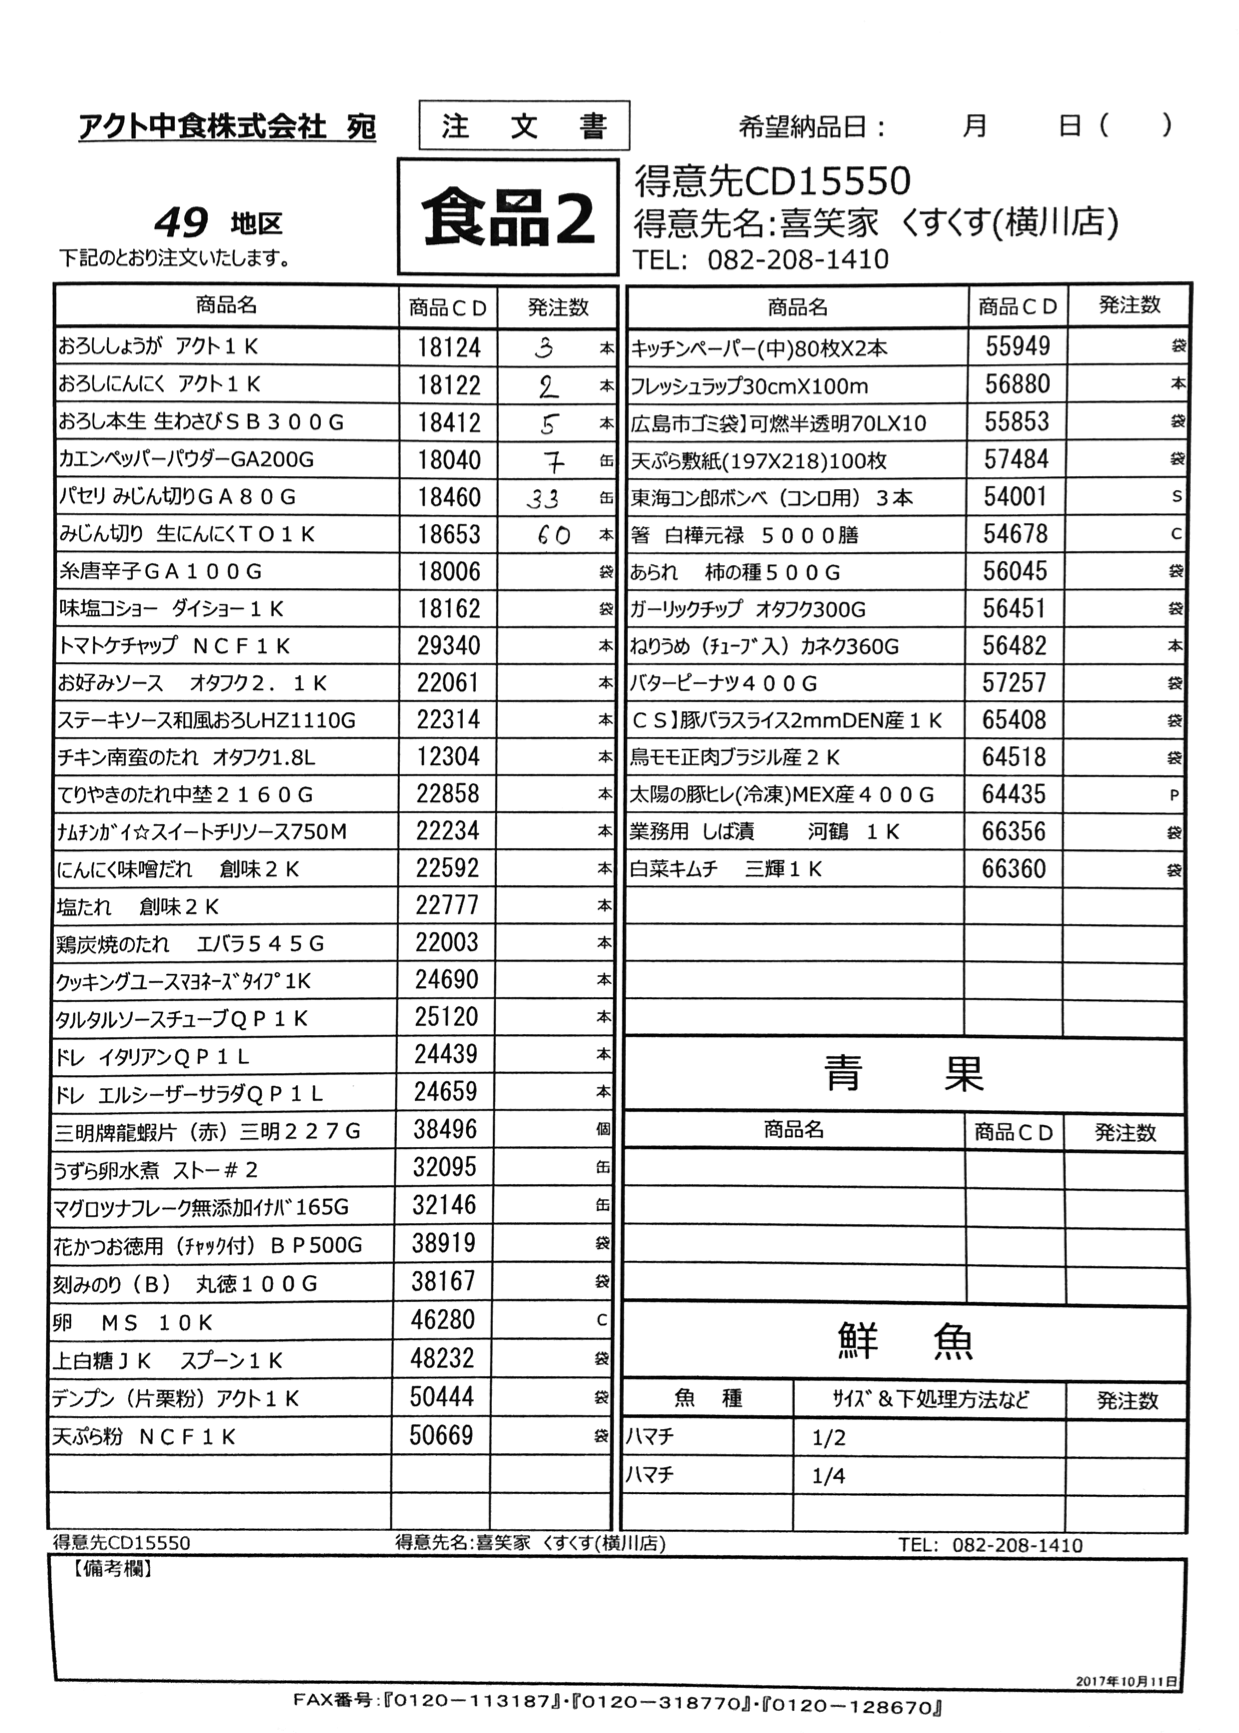 アクト中食株式会社 宛
注 文 書
希望納品日： 月 日（ ）
49 地区
下記のとおり注文いたします。
食品2
得意先CD15550
得意先名:喜笑家 くすくす(横川店)
TEL: 082-208-1410
商品名 商品ＣＤ 発注数
おろししょうが アクト１Ｋ 18124 3 本
おろしにんにく アクト１Ｋ 18122 2 本
おろし本生 生わさびＳＢ３００Ｇ 18412 5 本
カエンペッパーパウダーGA200G 18040 7 缶
パセリ みじん切りＧＡ８０Ｇ 18460 33 缶
みじん切り 生にんにくＴＯ１Ｋ 18653 60 本
糸唐辛子ＧＡ１００Ｇ 18006 袋
味塩コショー ダイショー１Ｋ 18162 袋
トマトケチャップ ＮＣＦ１Ｋ 29340 本
お好みソース オタフク２．１Ｋ 22061 本
ステーキソース和風おろしHZ1110G 22314 本
チキン南蛮のたれ オタフク1.8L 12304 本
てりやきのたれ中埜２１６０Ｇ 22858 本
ﾅﾑﾁﾝｶﾞｲ☆スイートチリソース750M 22234 本
にんにく味噌だれ 創味２Ｋ 22592 本
塩たれ 創味２Ｋ 22777 本
鶏炭焼のたれ エバラ５４５Ｇ 22003 本
クッキングユースﾏﾖﾈｰｽﾞﾀｲﾌﾟ1K 24690 本
タルタルソースチューブＱＰ１Ｋ 25120 本
ドレ イタリアンＱＰ１Ｌ 24439 本
ドレ エルシーザーサラダＱＰ１Ｌ 24659 本
三明牌龍蝦片（赤）三明２２７Ｇ 38496 個
うずら卵水煮 ストー＃２ 32095 缶
マグロツナフレーク無添加ｲﾅﾊﾞ165G 32146 缶
花かつお徳用（ﾁｬｯｸ付）ＢＰ500G 38919 袋
刻みのり（Ｂ） 丸徳１００Ｇ 38167 袋
卵 ＭＳ １０Ｋ 46280 C
上白糖ＪＫ スプーン１Ｋ 48232 袋
デンプン（片栗粉）アクト１Ｋ 50444 袋
天ぷら粉 ＮＣＦ１Ｋ 50669 袋
商品名 商品ＣＤ 発注数
キッチンペーパー(中)80枚X2本 55949 袋
フレッシュラップ30cmX100m 56880 本
広島市ゴミ袋】可燃半透明70LX10 55853 袋
天ぷら敷紙(197X218)100枚 57484 袋
東海コン郎ボンベ（コンロ用）３本 54001 S
箸 白樺元禄 ５０００膳 54678 C
あられ 柿の種５００Ｇ 56045 袋
ガーリックチップ オタフク300G 56451 袋
ねりうめ（ﾁｭｰﾌﾞ入）カネク360G 56482 本
バターピーナツ４００Ｇ 57257 袋
ＣＳ】豚バラスライス2mmDEN産１Ｋ 65408 袋
鳥モモ正肉ブラジル産２Ｋ 64518 袋
太陽の豚ヒレ(冷凍)MEX産４００Ｇ 64435 P
業務用 しば漬 河鶴 １Ｋ 66356 袋
白菜キムチ 三輝１Ｋ 66360 袋
青 果
商品名 商品ＣＤ 発注数
鮮 魚
魚 種 ｻｲｽﾞ＆下処理方法など 発注数
ハマチ 1/2
ハマチ 1/4
得意先CD15550 得意先名:喜笑家 くすくす(横川店) TEL: 082-208-1410
【備考欄】
2017年10月11日
FAX番号：『0120－113187』・『0120－318770』・『0120－128670』